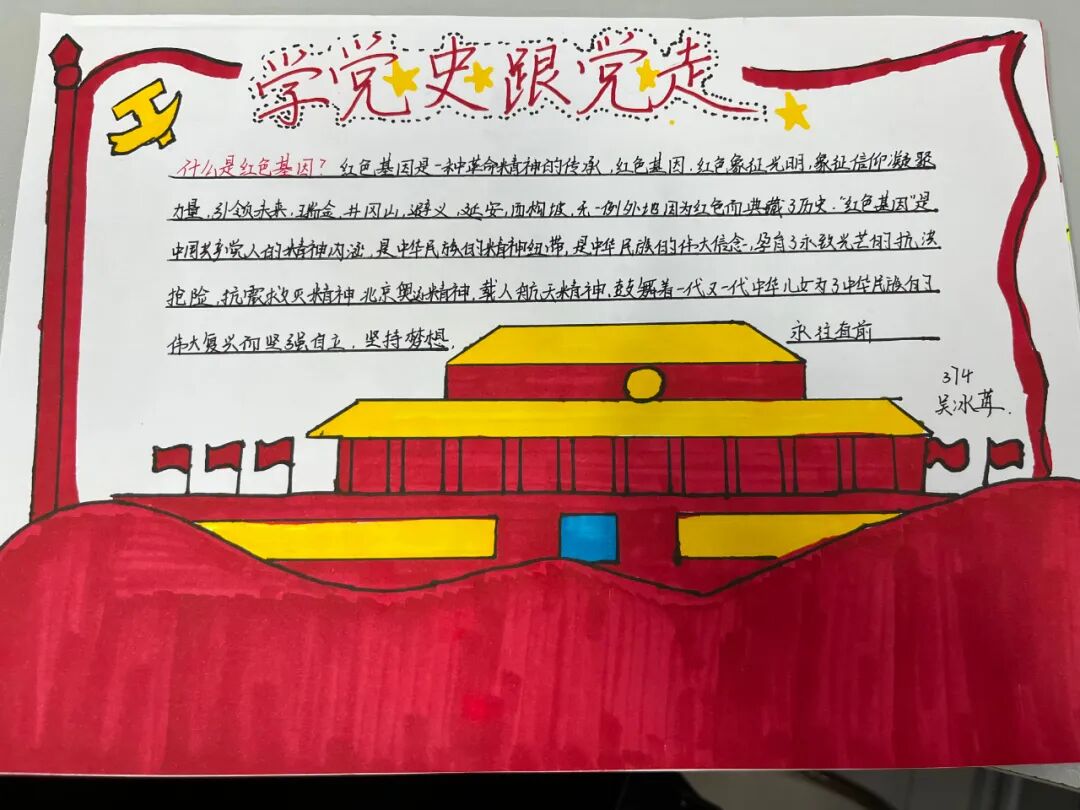 学党史跟党走
什么是红色基因？红色基因是一种革命精神的传承，红色基因．红色象征光明，象征信仰凝聚
力量，引领未来，瑞金，井冈山，遵义，延安，西柏坡，无一例外地因为红色而典藏了历史．“红色基因”是
中国共产党人的精神内涵，是中华民族的精神纽带，是中华民族的伟大信念，孕育了永致光艺的抗洪
抢险、抗震救灾精神，北京奥运精神，载人航天精神，鼓舞着一代又一代中华儿女为了中华民族的
伟大复兴而坚强自立，坚持梦想，永往直前
374
吴冰茸．